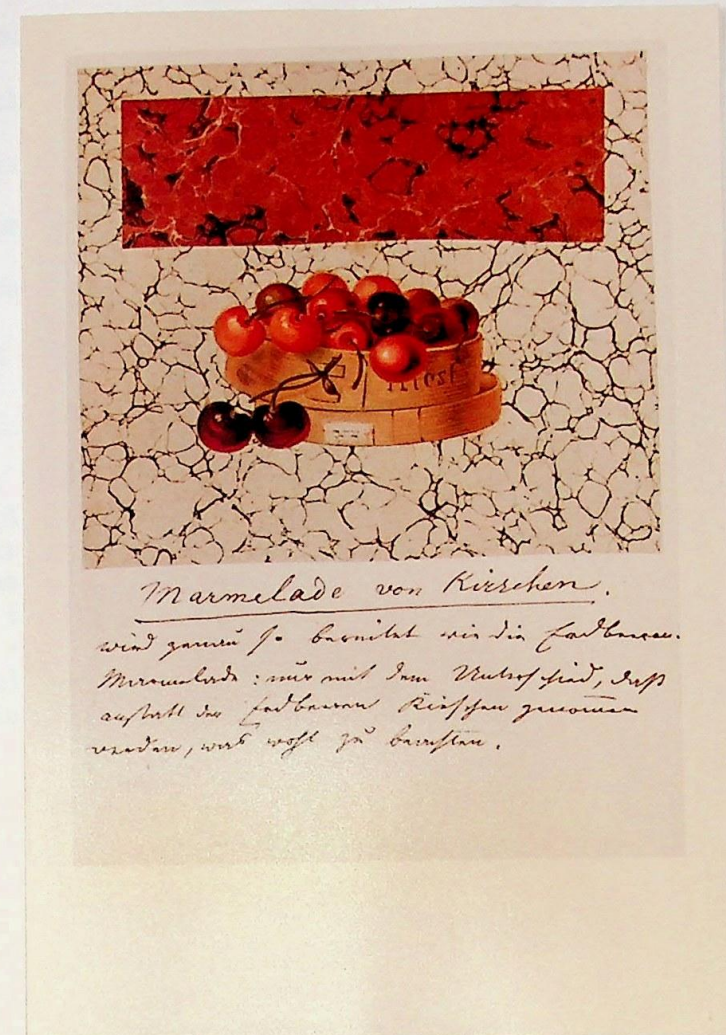 Marmelade von Kirschen.
wird genau so bereitet wie die Erdbeeren-
Marmelade: nur mit dem Unterschied, daß
anstatt der Erdbeeren Kirschen genommen
werden, was wohl zu beachten.